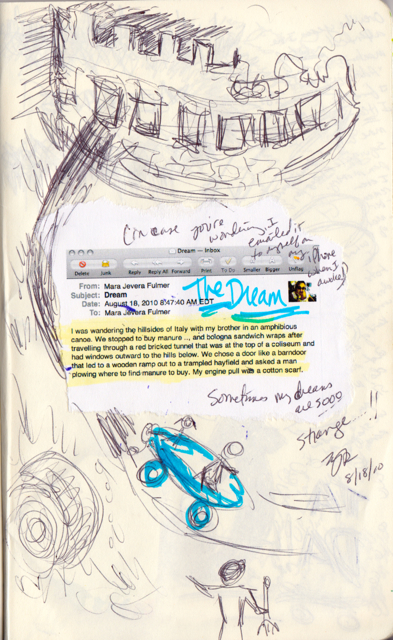 (in case you're
wondering, I
emailed it
to myself on
my iPhone
when I
awoke)
Dream — Inbox
Delete Junk Reply Reply All Forward Print To Do Smaller Bigger Unflag
From: Mara Jevera Fulmer
Subject: Dream
Date: August 18, 2010 8:47:40 AM EDT
To: Mara Jevera Fulmer
The Dream
I was wandering the hillsides of Italy with my brother in an amphibious
canoe. We stopped to buy manure ..., and bologna sandwich wraps after
travelling through a red bricked tunnel that was at the top of a coliseum and
had windows outward to the hills below. We chose a door like a barndoor
that led to a wooden ramp out to a trampled hayfield and asked a man
plowing where to find manure to buy. My engine pull was a cotton scarf.
Sometimes my dreams
are sooo
strange....!!
8/18/10